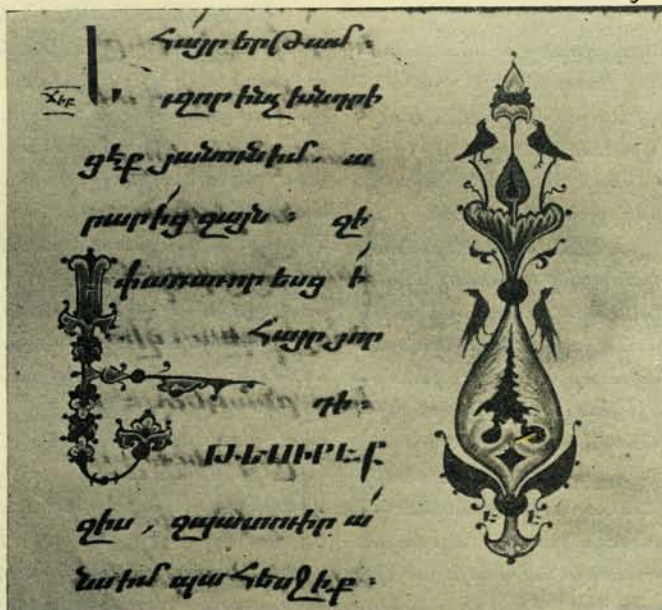 Հայր երթամ ։
ՃԻԲ զոր ինչ խնդրի
ցէք յանունիմ. ա
րարից զայն ։ զի
փառաւորեսցի
Հայր յոր
դի
ԵԹԷՍԻՐԷՔ
զիս , զպատուիրա
նսիմ պահեսջիք ։